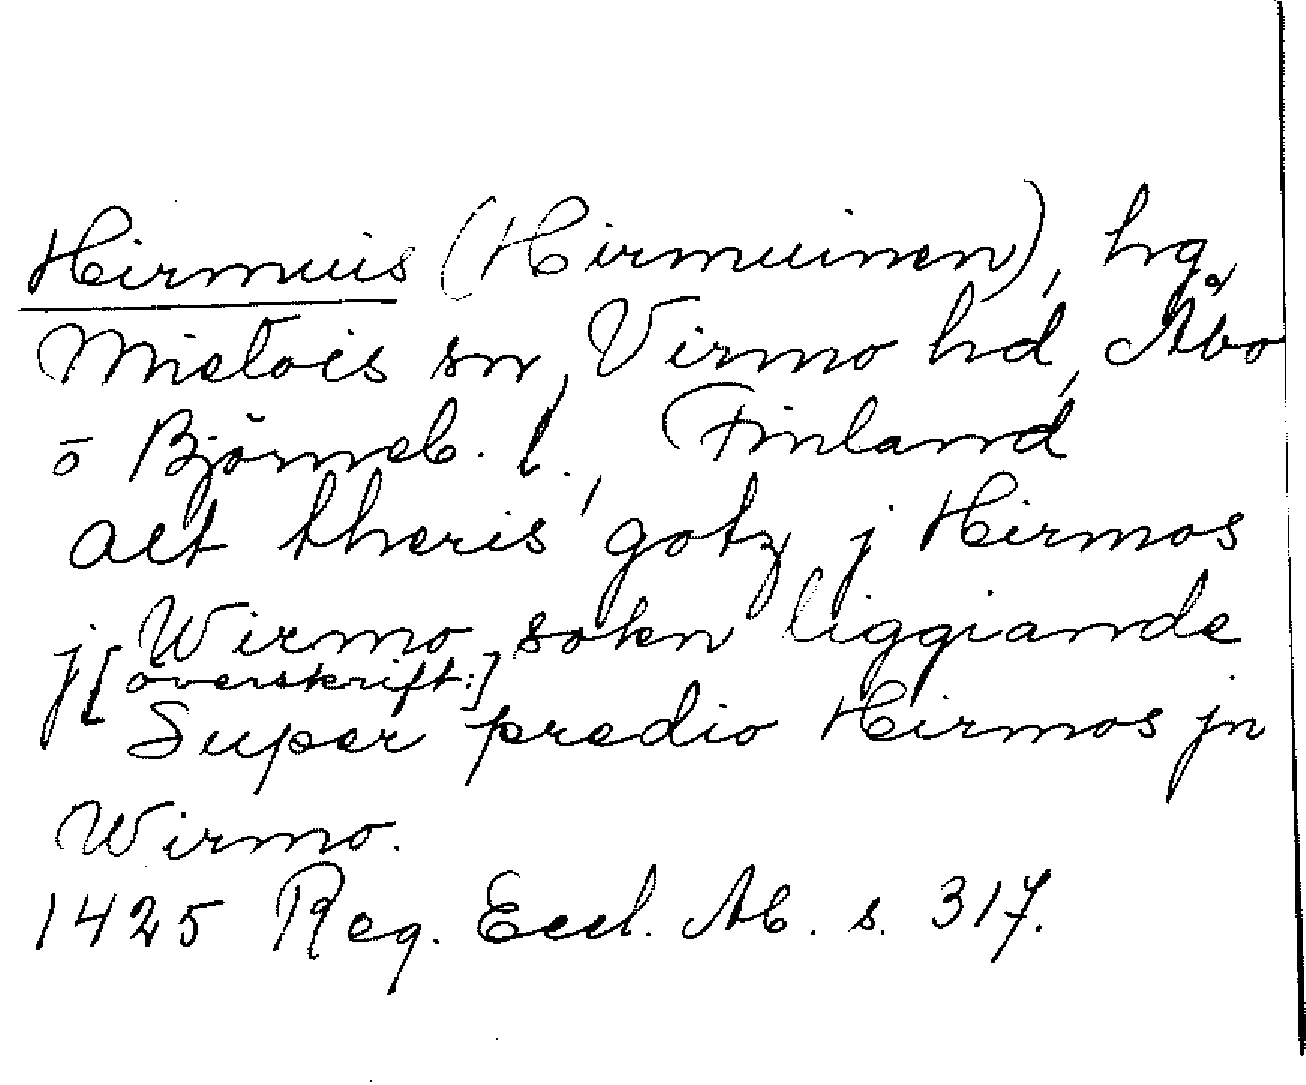 Hirmuis (Hirmuinen), hg,
Mietois sn, Virmo hd, Åbo
o Björneb. l., Finland
alt theris gotz j Hirmos
j Wirmo sokn liggiande
[överskrift:]
Super predio Hirmos jn
Wirmo.
1425 Reg. Eccl. Ab. s. 317.